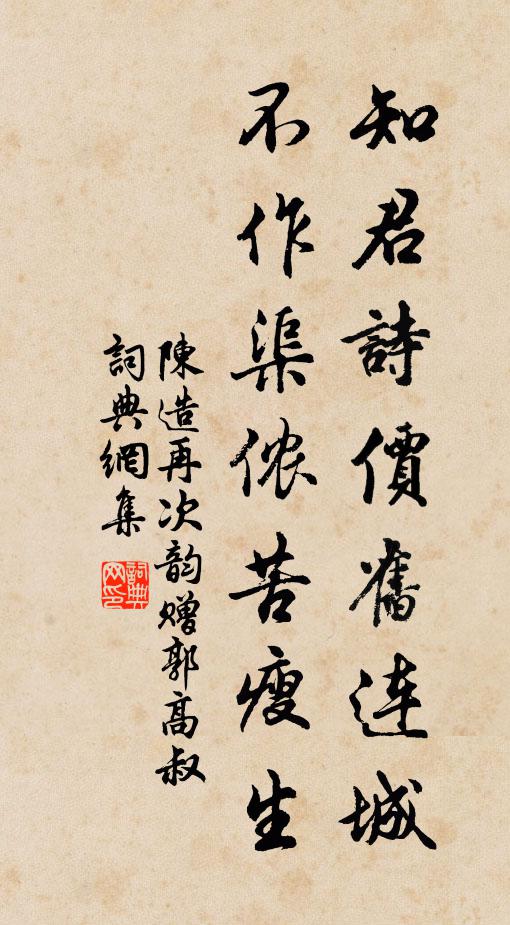 知君詩價舊連城
不作渠侬苦瘦生
陳造再次韵贈郭高叔
詞典網集
詞典网印